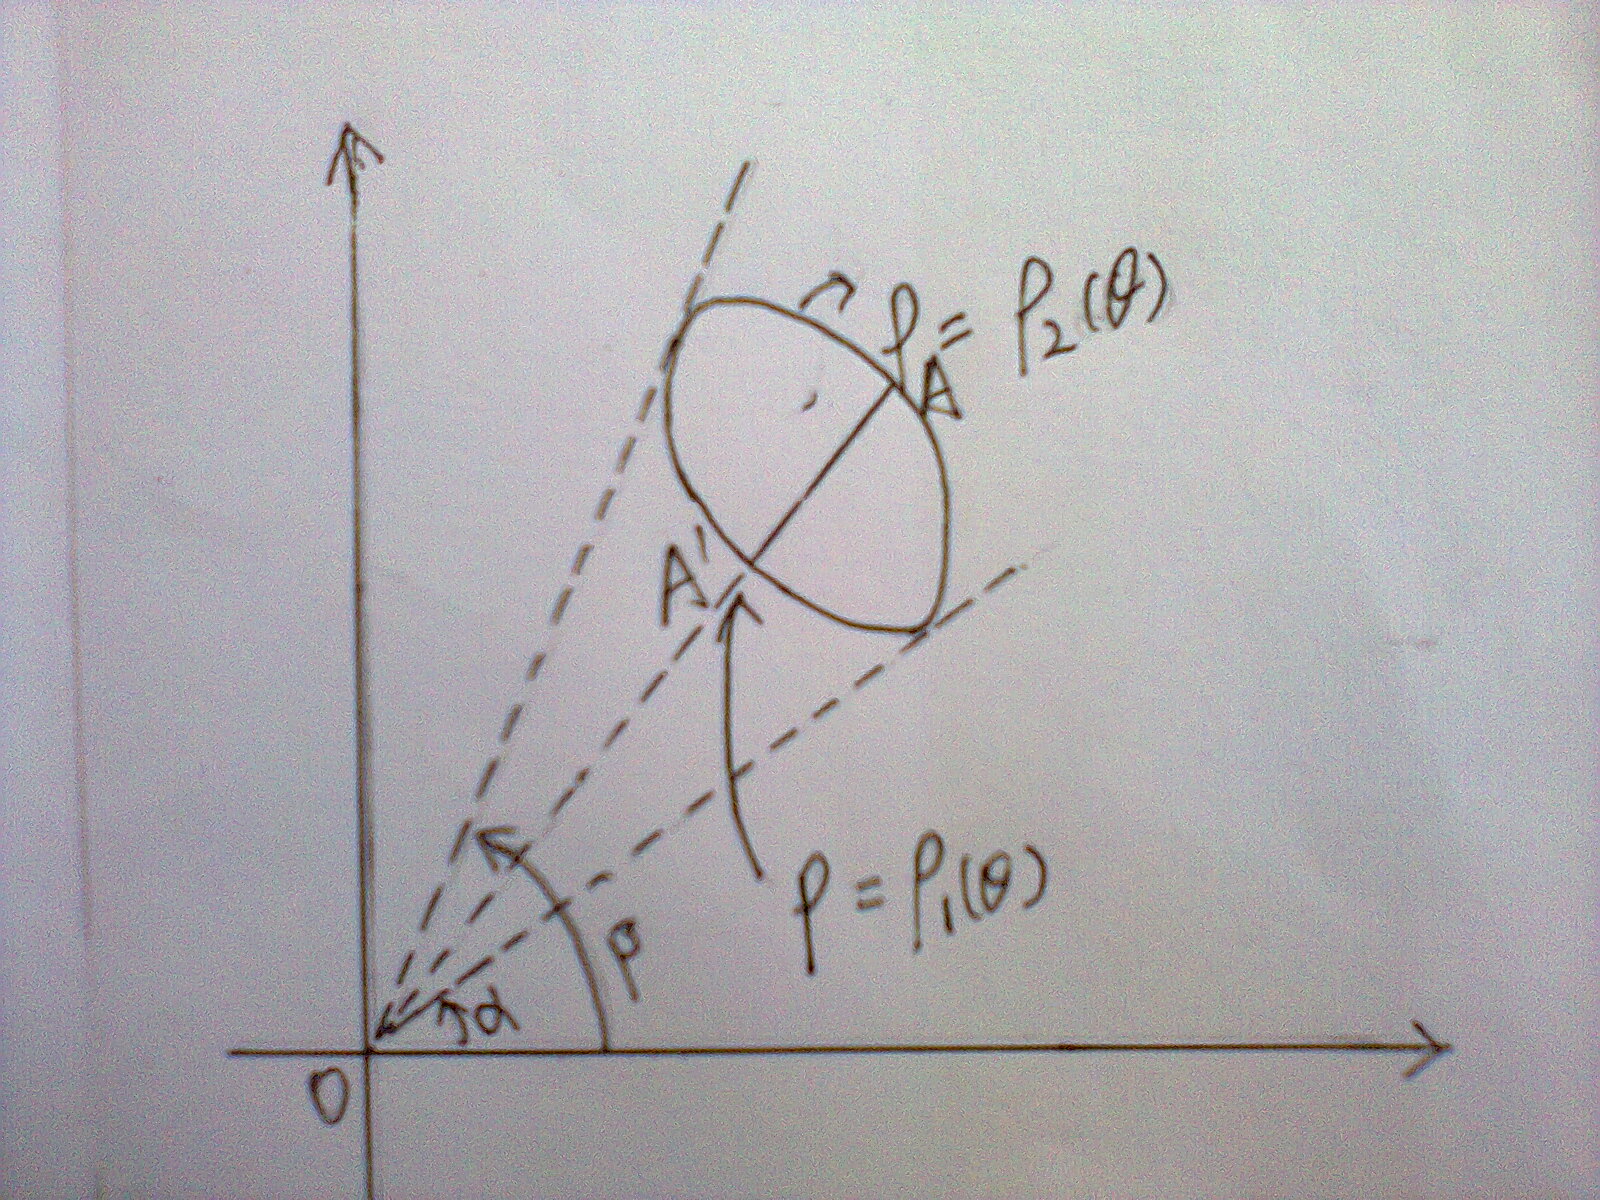 ρ = ρ₂(θ)
A
A'
ρ = ρ₁(θ)
β
α
O